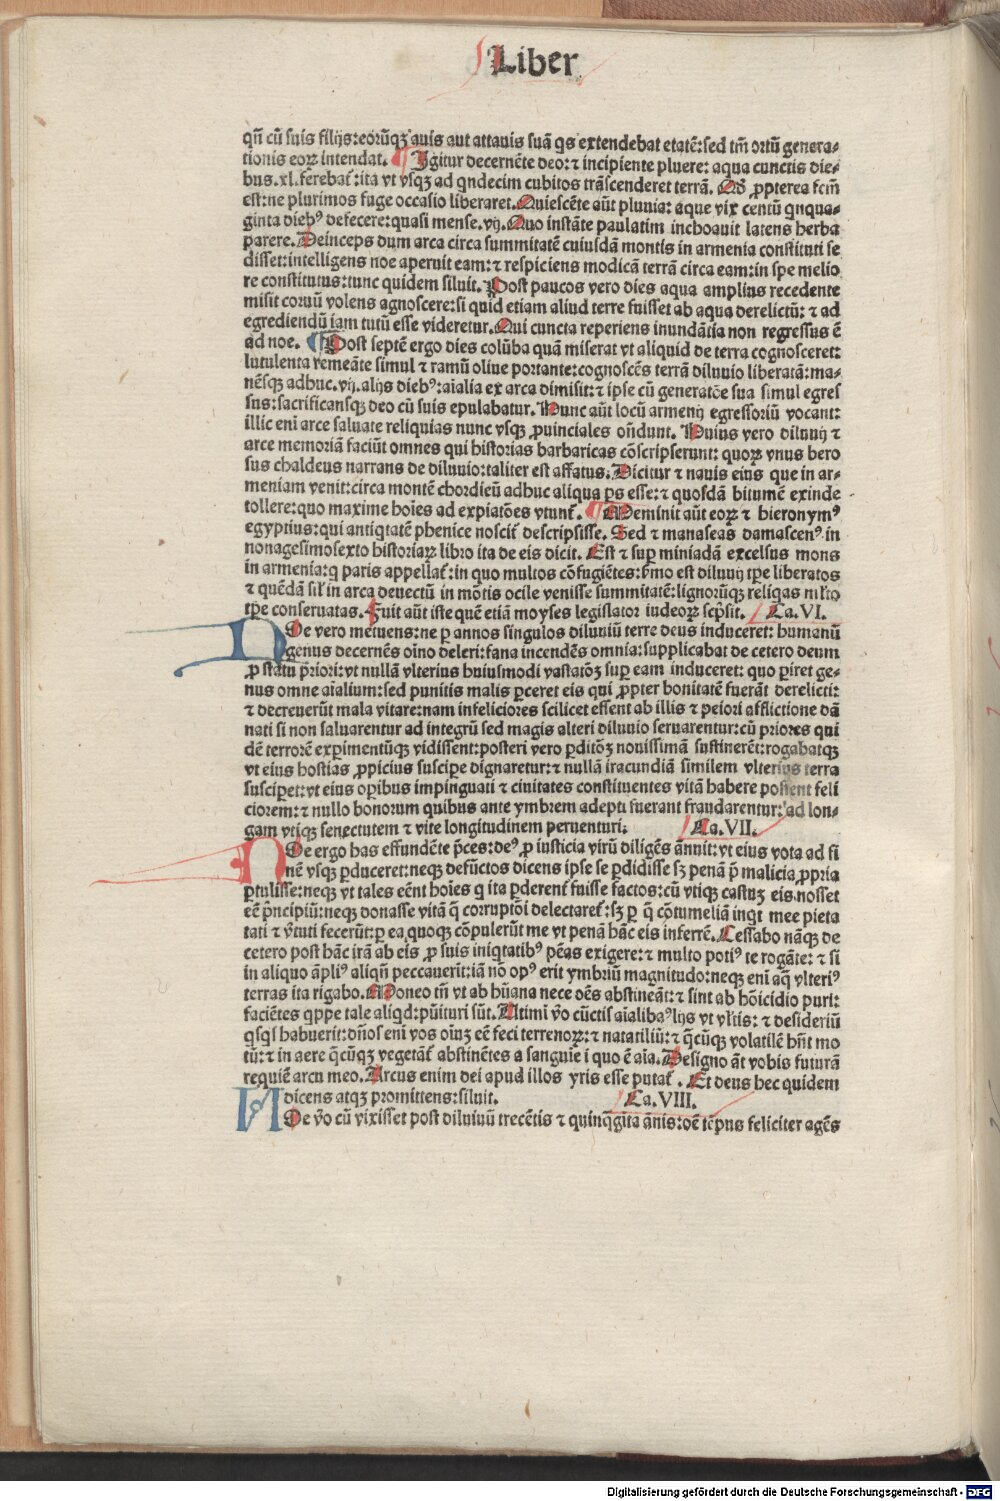 Liber
qñ cũ suis filijs:eorũqꝫ auis aut attauis suã qͥs extendebat etatẽ:sed tm̃ ortũ genera-
tionis eoꝝ intendat. ¶ Igitur decernẽte deo:⁊ incipiente pluere: aqua cunctis die-
bus.xl.ferebat᷑:ita vt vsqꝫ ad qͥndecim cubitos trãscenderet terrã. Qd̃ ꝓpterea fcm̃
est:ne plurimos fuge occasio liberaret.Quiescẽte aũt pluuia: aque vix centũ qͥnqua-
ginta diebꝰ defecere:quasi mense.vij.Quo instãte paulatim inchoauit latens herba
parere.Deinceps dum arca circa summitatẽ cuiusdã montis in armenia constituti se
disset:intelligens noe aperuit eam:⁊ respiciens modicã terrã circa eam:in spe melio
re constitutus:tunc quidem siluit.Post paucos vero dies aqua amplius recedente
misit coruũ volens agnoscere:si quid etiam aliud terre fuisset ab aqua derelictũ: ⁊ ad
egrediendũ iam tutũ esse videretur.Qui cuncta reperiens inundãtia non regressus ẽ
ad noe. ¶ Post septẽ ergo dies colũba quã miserat vt aliquid de terra cognosceret:
lutulenta remeãte simul ⁊ ramũ oliue portante:cognoscẽs terrã diluuio liberatã:ma-
nẽsqꝫ adhuc.vij.alijs diebꝰ:aĩalia ex arca dimisit:⁊ ipse cũ generatõe sua simul egres
sus:sacrificansqꝫ deo cũ suis epulabatur.Nunc aũt locũ armenij egressoriũ vocant:
illic eni arce saluate reliquias nunc vsqꝫ ꝓuinciales oñdunt. Huius vero diluuij ⁊
arce memoriã faciũt omnes qui historias barbaricas cõscripserunt: quoꝝ vnus bero
sus chaldeus narrans de diluuio:taliter est affatus.Dicitur ⁊ nauis eius que in ar-
meniam venit:circa montẽ chordieũ adhuc aliqua ꝑs esse:⁊ quosdã bitumẽ exinde
tollere:quo maxime hoĩes ad expiatões vtunt᷑. ¶ Meminit aũt eoꝝ ⁊ hieronymꝰ
egyptius:qui antiqͥtatẽ phenice noscit᷑ descripsisse. Sed ⁊ manaseas damascenꝰ in
nonagesimosexto historiaꝝ libro ita de eis dicit. Est ⁊ suꝑ miniadã excelsus mons
in armenia:q̃ paris appellat᷑:in quo multos cõfugiẽtes:fʼmo est diluuij tꝑe liberatos
⁊ quẽdã sil̓ in arca deuectũ in mõtis ocile venisse summitatẽ:lignorũqꝫ reliqͥas ml̓to
tꝑe conseruatas.Fuit aũt iste quẽ etiã moyses legislator iudeoꝝ scp̃sit. Ca.VI.
NOe vero metuens:ne ꝑ annos singulos diluuiũ terre deus induceret: humanũ
genus decernẽs oĩno deleri:fana incendẽs omnia:supplicabat de cetero deum
ꝓ statu p̃riori:vt nullã vlterius huiusmodi vastatõꝫ suꝑ eam induceret: quo ꝑiret ge-
nus omne aĩalium:sed punitis malis ꝑceret eis qui ꝓpter bonitatẽ fuerãt derelicti:
⁊ decreuerũt mala vitare:nam infeliciores scilicet essent ab illis ⁊ peiori afflictione dã
nati si non saluarentur ad integrũ sed magis alteri diluuio seruarentur:cũ priores qui
dẽ terrorẽ exꝑimentũqꝫ vidissent:posteri vero ꝑditõꝫ nouissimã sustinerẽt:rogabatqꝫ
vt eius hostias ꝓpicius suscipe dignaretur:⁊ nullã iracundiã similem vlterius terra
susciꝑet:vt eius oꝑibus impinguati ⁊ ciuitates constituentes vitã habere possent feli
ciorem:⁊ nullo bonorum quibus ante ymbrem adepti fuerant fraudarentur: ad lon-
gam vtiqꝫ senectutem ⁊ vite longitudinem peruenturi. Ca.VII.
NOe ergo has effundẽte p̃ces:deꝰ ꝓ iusticia virũ diligẽs ãnuit:vt eius vota ad fi
nẽ vsqꝫ ꝑduceret:neqꝫ defũctos dicens ipse se ꝑdidisse sꝫ penã p̃ malicia ꝓpria
ꝑtulisse:neqꝫ vt tales eẽnt hoĩes q̃ ita ꝑderent᷑ fuisse factos:cũ vtiqꝫ castuꝫ eis nosset
eẽ p̃ncipiũ:neqꝫ donasse vitã q̃ corruptõi delectaret᷑:sꝫ ꝑ q̃ cõtumeliã inqͥt mee pieta
tati ⁊ ṽtuti fecerũt:ꝑ ea quoqꝫ cõpulerũt me vt penã hãc eis inferrẽ.Cessabo nãqꝫ de
cetero post hãc irã ab eis ꝓ suis iniqͥtatibꝰ pẽas exigere:⁊ multo potiꝰ te rogãte: ⁊ si
in aliquo ãpliꝰ aliqñ peccauerit:iã nõ opꝰ erit ymbriũ magnitudo:neqꝫ eni aq̃ vlteriꝰ
terras ita rigabo.Moneo tñ vt ab hũana nece oẽs abstineãt:⁊ sint ab hõicidio puri:
faciẽtes qͥppe tale aliqͥd:pũituri sũt.Vltimi ṽo cũctis aĩalibaꝰ lijs vt vl̓tis: ⁊ desideriũ
qͥsqͥs habuerit:dños eni vos oĩuꝫ eẽ feci terrenoꝝ:⁊ natatiliũ:⁊ q̃cũqꝫ volatilẽ hñt mo
tũ:⁊ in aere q̃cũqꝫ vegetãt᷑ abstinẽtes a sanguie i quo ẽ aĩa.Designo ãt vobis futurã
requiẽ arcu meo.Arcus enim dei apud illos yris esse putat᷑ . Et deus hec quidem
dicens atqꝫ promittens:siluit. Ca.VIII.
NOe ṽo cũ vixisset post diluuiũ trecẽtis ⁊ quinq̃gĩta ãnis:oẽ tẽpus feliciter agẽs
Digitalisierung gefördert durch die Deutsche Forschungsgemeinschaft - DFG